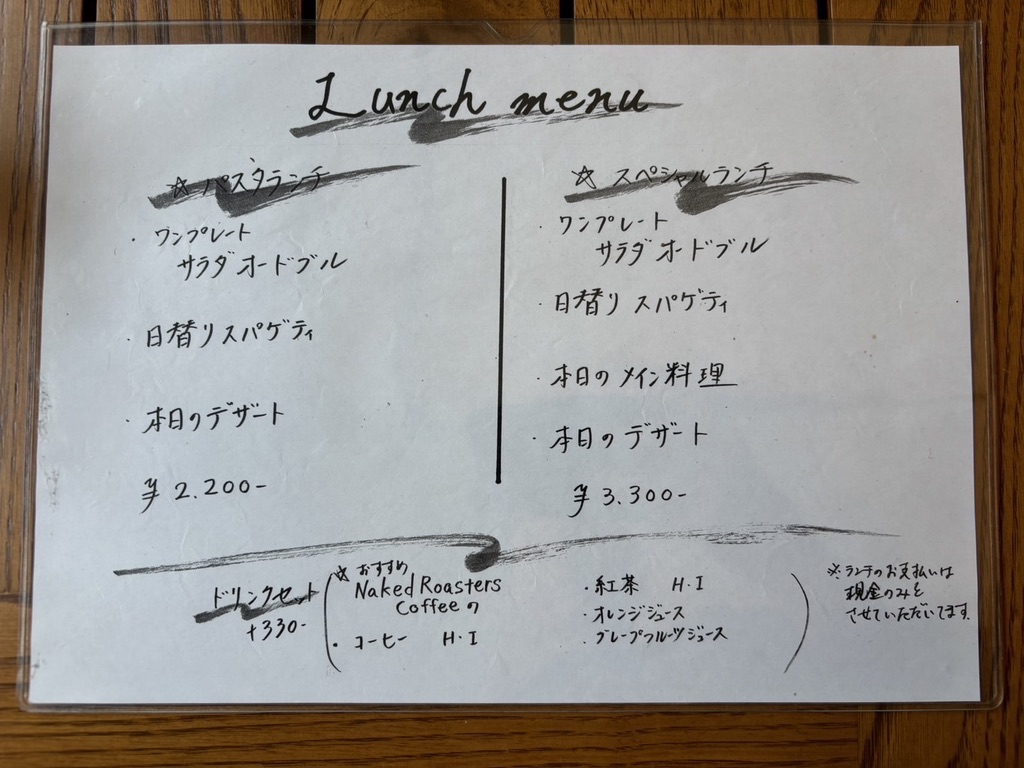 Lunch menu
☆ パスタランチ
・ワンプレート
サラダオードブル
・日替りスパゲティ
・本日のデザート
¥2.200-
☆ スペシャルランチ
・ワンプレート
サラダオードブル
・日替りスパゲティ
・本日のメイン料理
・本日のデザート
¥3.300-
ドリンクセット
+330-
☆おすすめ
Naked Roasters
Coffeeの
・コーヒー H・I
・紅茶 H・I
・オレンジジュース
・グレープフルーツジュース
※ランチのお支払いは
現金のみと
させていただいてます。